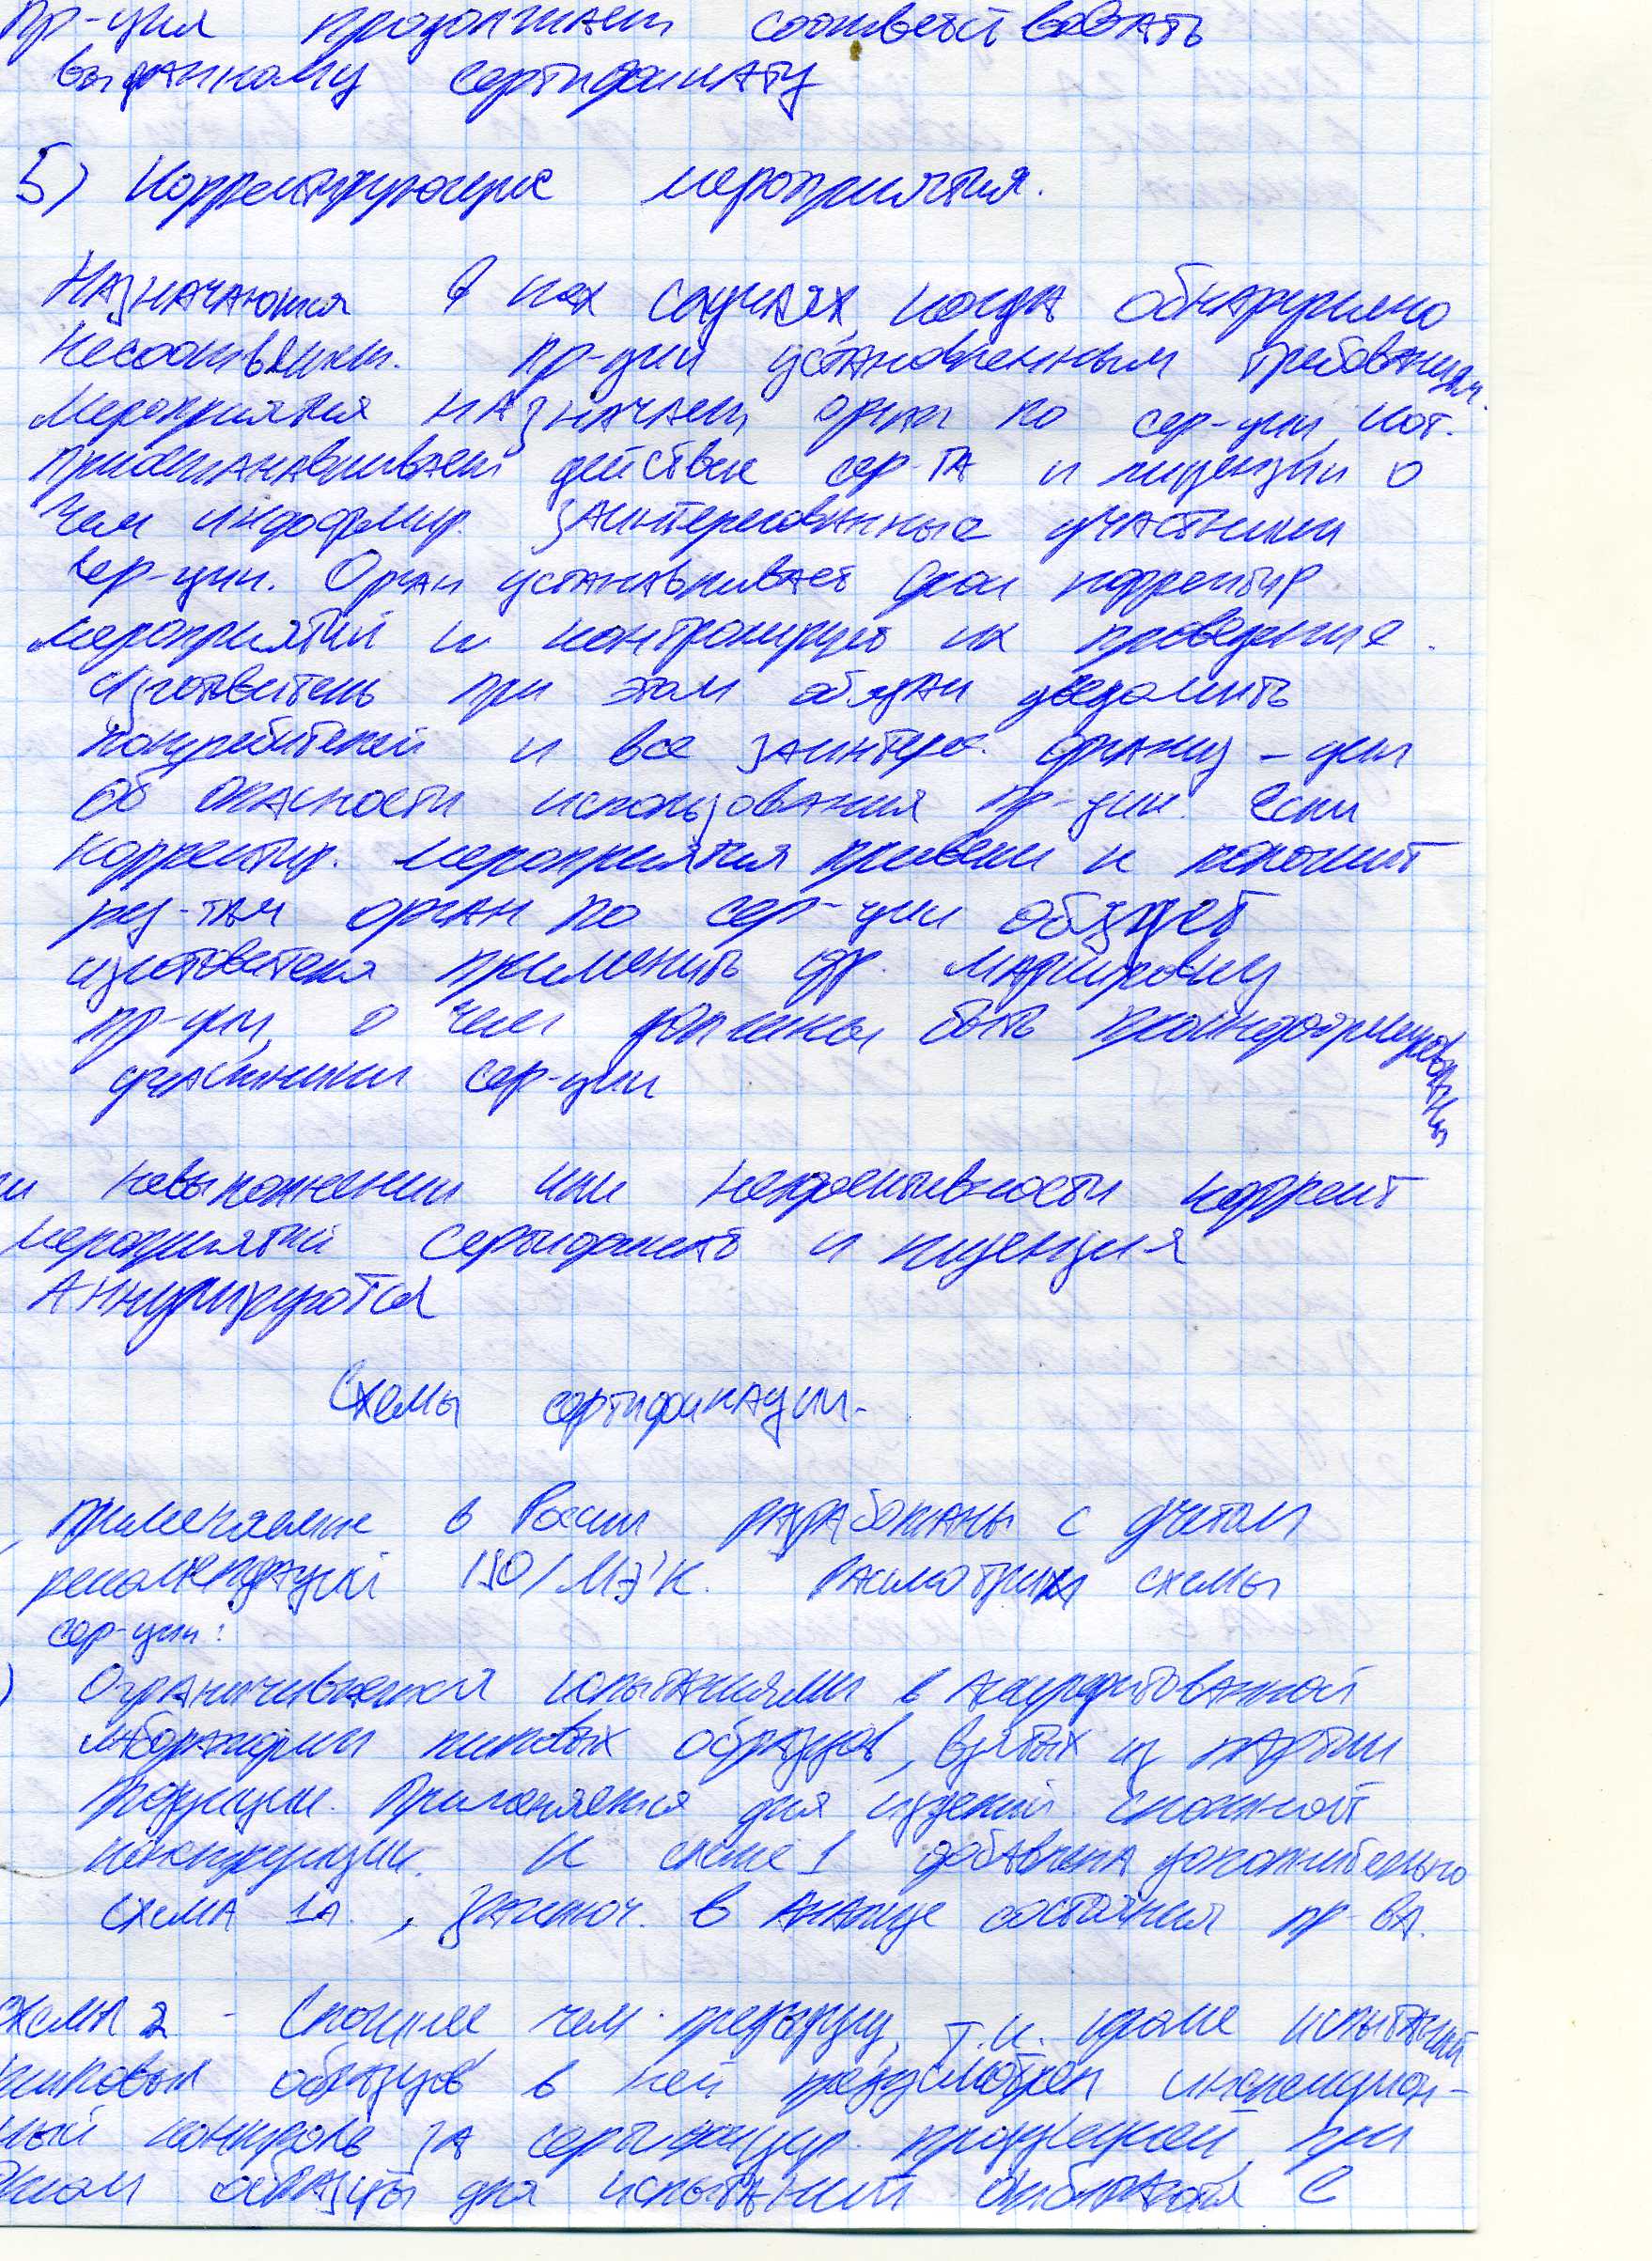 пр-ция продолжает соответствовать
выданному сертификату
5) Корректирующие мероприятия.
Назначаются в тех случаях, когда обнаружено
несоответст. пр-ции установленным требованиям.
Мероприятия назначает орган по сер-ции, кот.
приостанавливает действие сер-та и лицензии о
чем информир. заинтересованные участники
сер-ции. Орган устанавливает срок корректир
мероприятий и контролирует их проведение.
Изготовитель при этом обязан уведомить
потребителей и все заинтерес. организ-ции
об опасности использования пр-ции. Если
корректир. мероприятия привели к полож
рез-там орган по сер-ции обязует
изготовителя применить др. маркировку
пр-ции, о чем должны быть проинформированы
участники сер-ции
и невыполнении или неэффективности коррект
мероприятий сертификат и лицензия
Аннулируются
Схемы сертификации.
применяемые в России разработаны с учетом
рекомендаций ISO/МЭК. Рассмотрим схемы
сер-ции:
) Ограничивается испытаниями в аккредитованной
лаборатории типовых образцов, взятых из партии
продукции. Применяется для изделий сложной
конструкции. К схеме 1 добавлена дополнительно
схема 1А., заключ. в анализе состояния пр-ва.
схема 2 - сложнее, чем предыдущ, т.к. кроме испытаний
типовых образцов в ней предусмотрен инспекцион-
ный контроль за сертифицир. продукцией, при
этом образцы для испытаний отбираются с